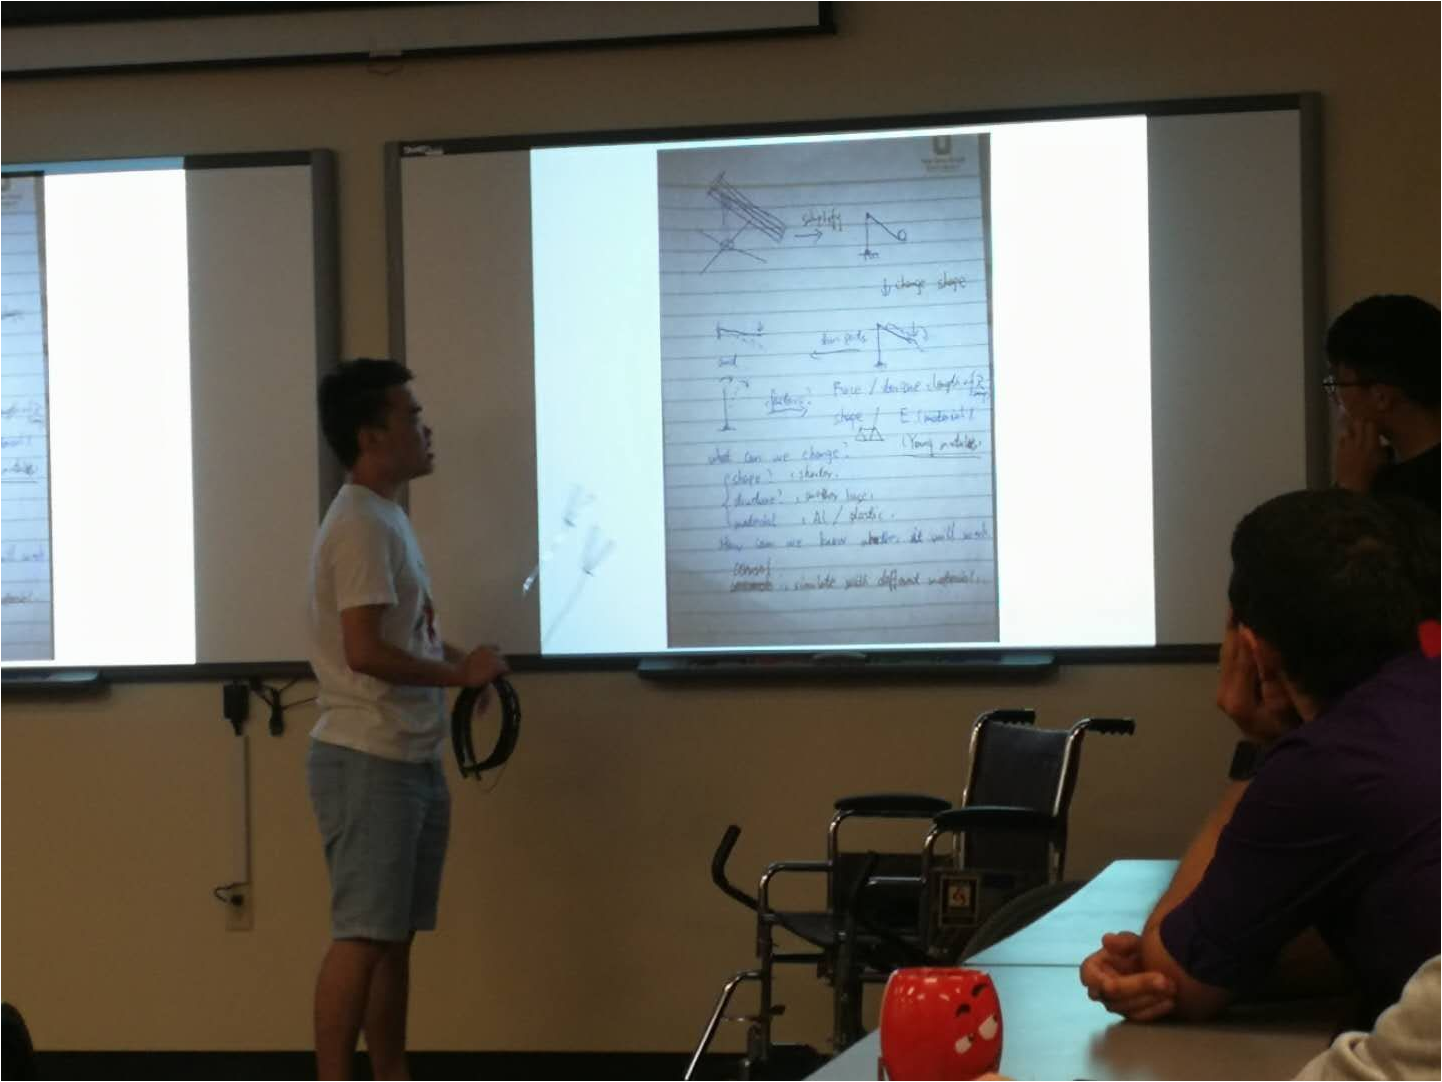 simplify
change shape
and
factors? Force / torque length of
shape / E (material)
(Young modulus)
what can we change?
shape? , shorter.
structure? , another base.
material , Al / plastic.
How can we know whether it will work
, simulate with different material.